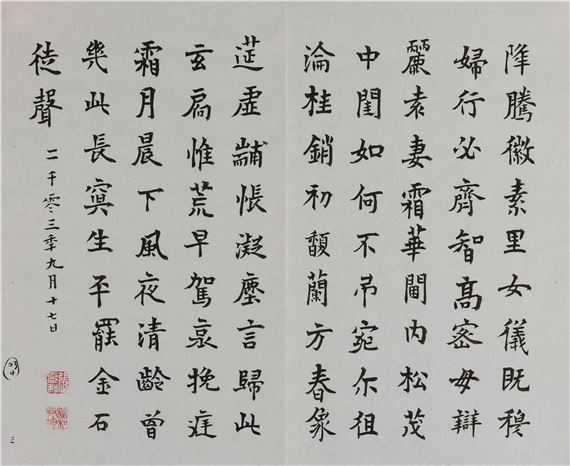 降騰徽素里女儀既穆
婦行必齊智高密母辯
麗袁妻霜華閫内松茂
中閨如何不吊宛尔徂
淪桂銷初馥蘭方春象
莚虚黼帳凝塵言歸此
玄扃惟荒早駕哀挽
霜月晨下風夜清齡曾
幾此長冥生平罷金石
徒聲
二千零三年九月十七日
三